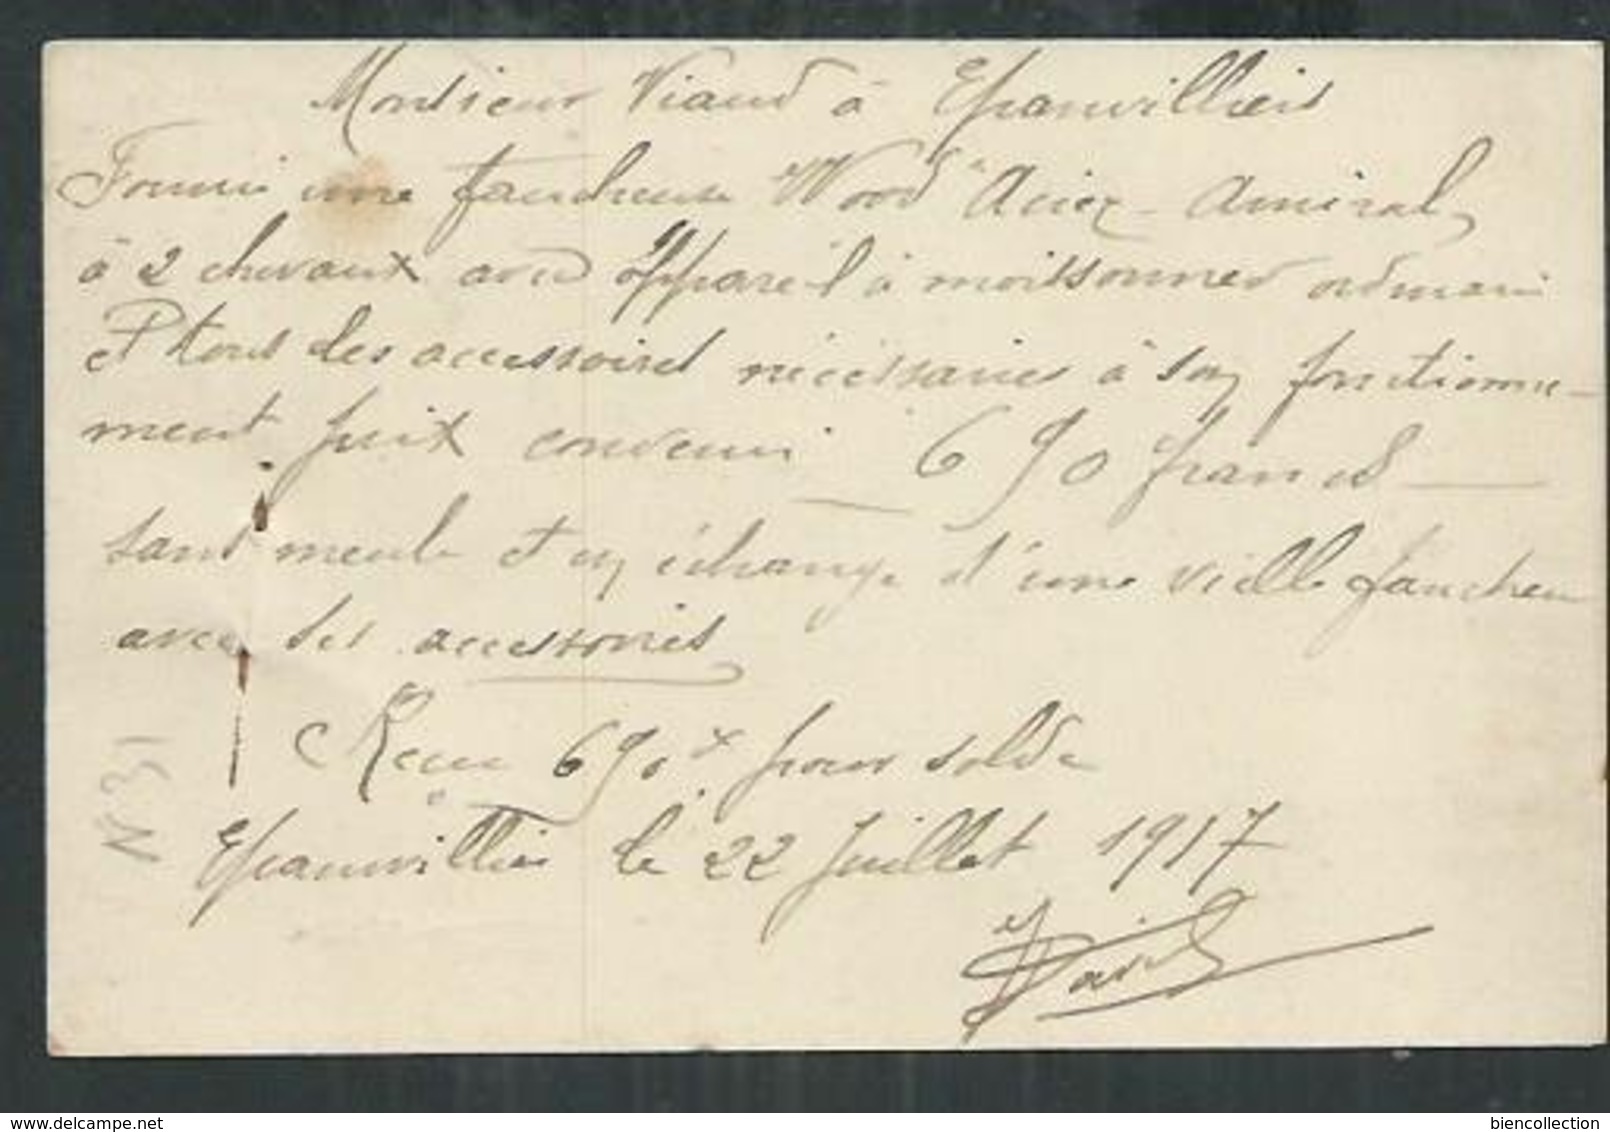 Monsieur Viaud à Epanvilliers
Fourni une faucheuse "Wood" Acier - Amiral
à 2 chevaux avec appareil à moissonner
et tous les accessoires nécéssaires à son fonctionne-
ment prix convenu — 690 francs —
sans meule et en échange d'une vielle faucheu
avec ses accessoires
Recu 690 pour solde
Epanvilliers le 22 Juillet 1917
delcampe.net
biencollection